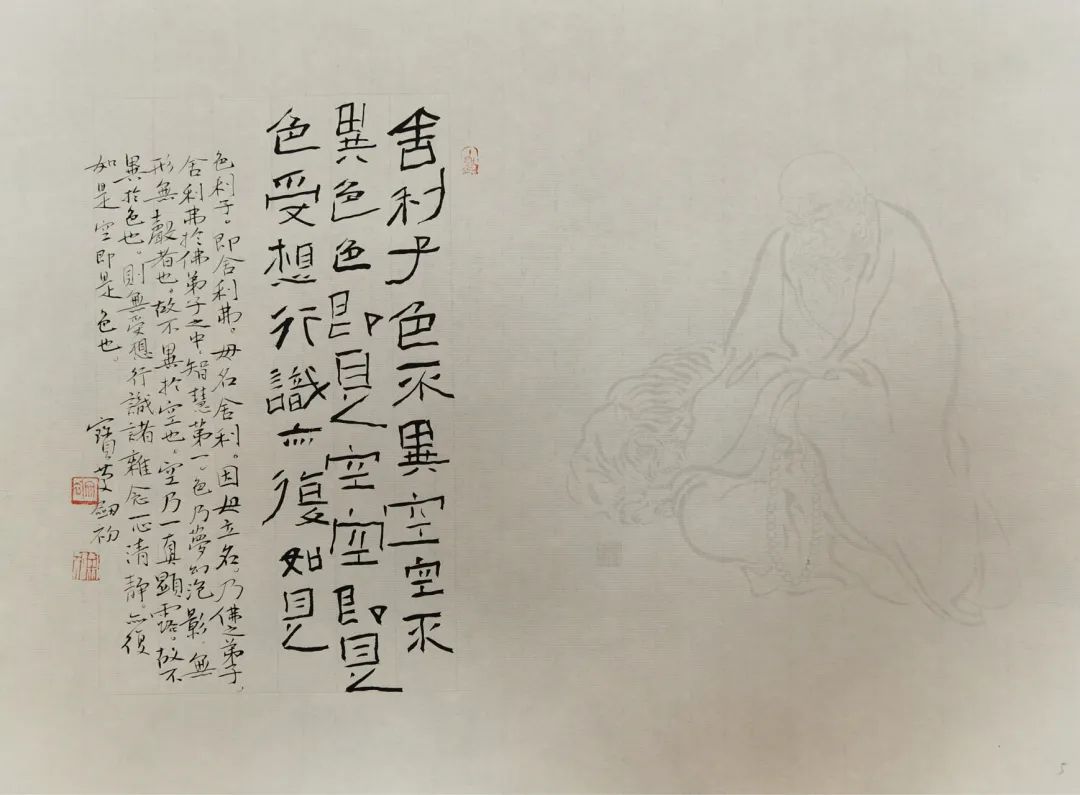 舍利子色不異空空不
異色色即是空空即是
色受想行識亦復如是
色利子。即舍利弗。母名舍利。因母立名。乃佛之弟子。
舍利弗於佛弟子之中，智慧第一。色乃夢幻泡影，無
形無聲者也。故不異於空也。空乃一真顯露，故不
異於色也。則無受想行識諸雜念一心清靜。亦復
如是空即是色也。
寶
5